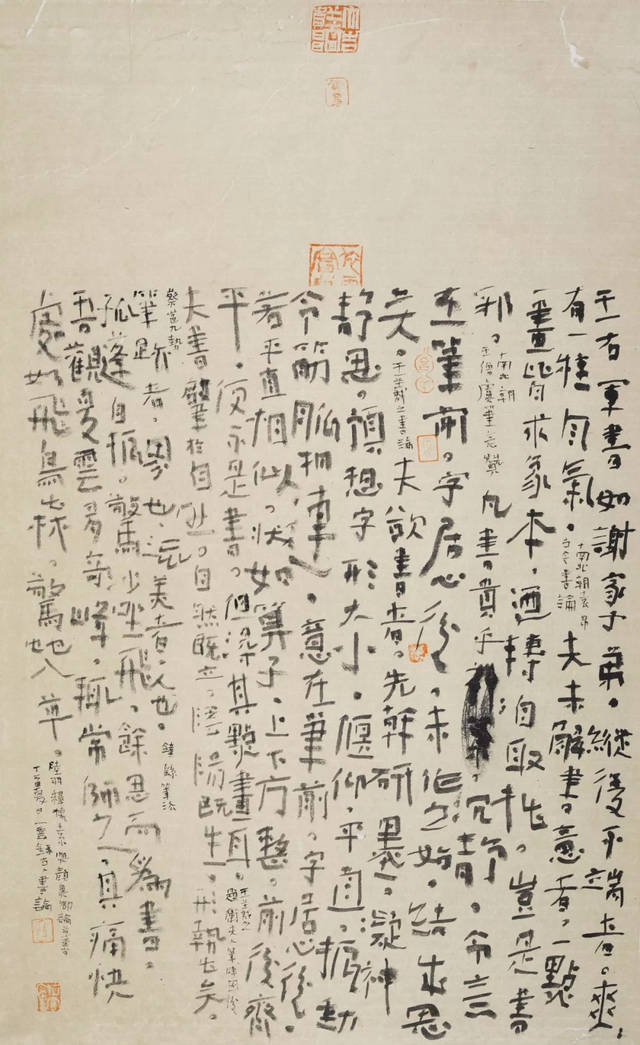 王右軍書如謝家子弟。縱復不端者。爽爽
有一種風氣。南北朝袁昂古今書論 夫未解書意者。一點
一畫皆求象本。迺轉自取拙。豈是書
邪。南北朝王僧虔筆意贊 凡書貴乎沉靜。令意
在筆前。字居心後。未作之始。結成思
矣。王羲之書論 夫欲書者。先幹研墨。凝神
靜思。預想字形大小。偃仰。平直。振動
令筋脈相連。意在筆前。字居心後。
若平直相似。狀如算子。上下方整。前後齊
平。便不是書。但得其點畫耳。王羲之題衛夫人筆陣圖後
夫書肇於自然。自然既立。陰陽既生。形勢出矣。
蔡邕九勢
筆跡者。界也。流美者。人也。鍾繇筆法
孤蓬自振。驚沙坐飛。餘思而為書。
吾觀夏雲多奇峰。輒常師之。其痛快
處如飛鳥出林。驚蛇入草。陸羽釋懷素與顏真卿論草書